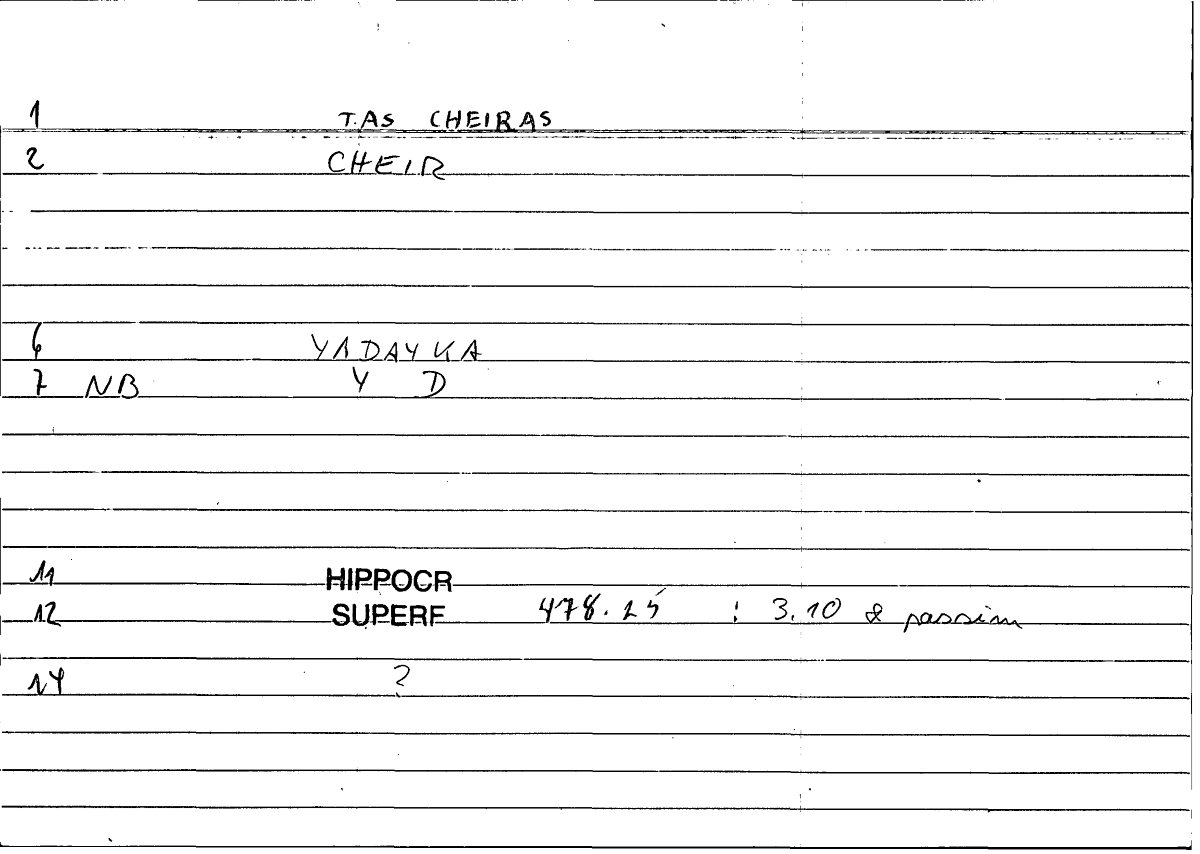 1 TAS CHEIRAS
2 CHEIR
6 YADAYKA
7 NB Y D
11 HIPPOCR
12 SUPERF 478.25 : 3.10 & passim
14 ?